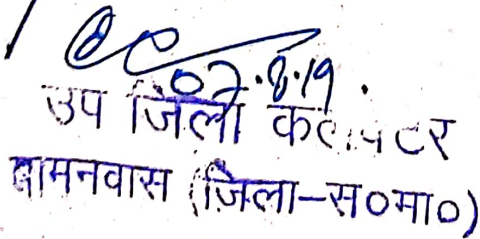 07.8.19.
उप जिला कलेक्टर
बामनवास (जिला-स०मा०)